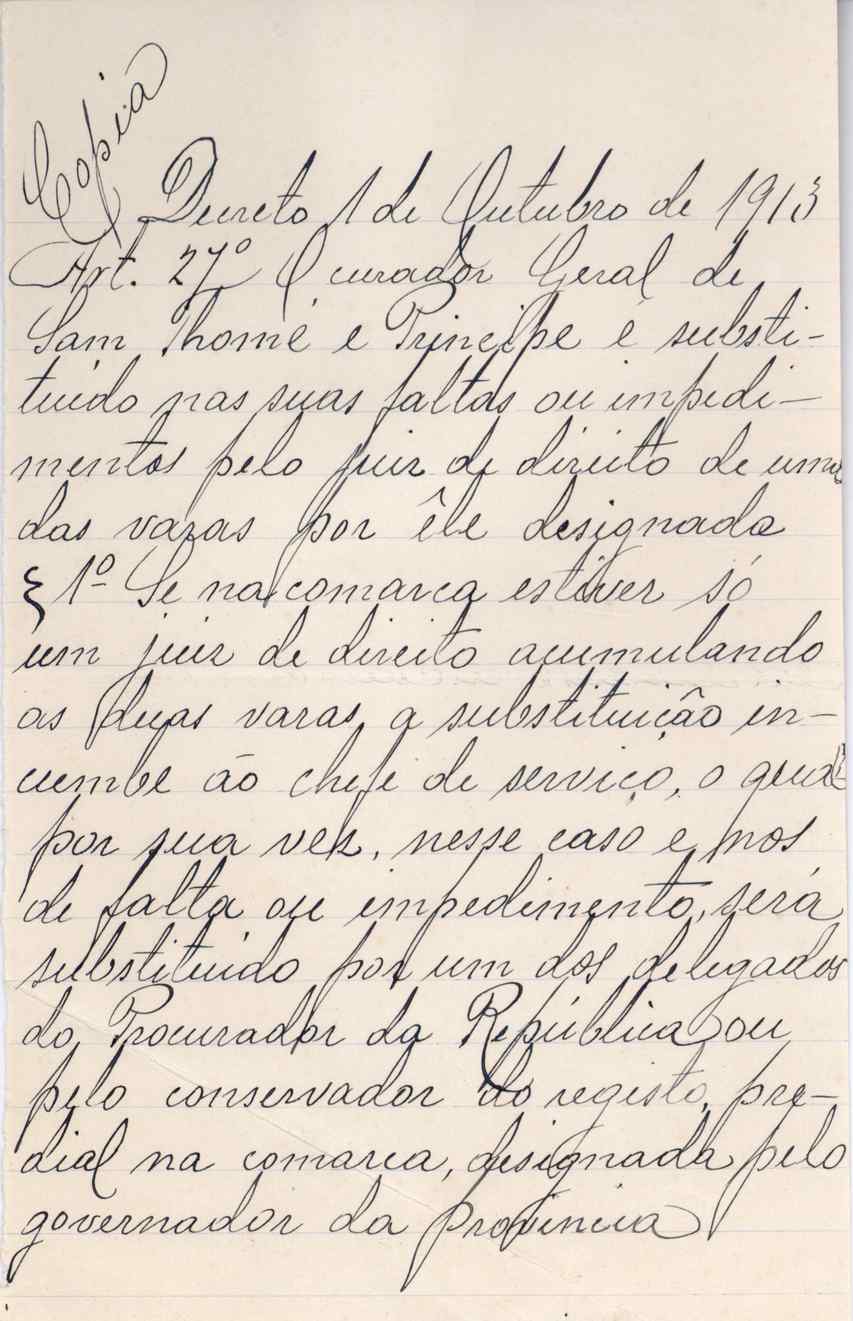 Copia
Decreto 1 de Outubro de 1913
Art. 27º O curador Geral de
Sam Thomé e Principe é substi-
tuido nas suas faltas ou impedi-
mentos pelo juiz de direito de uma
das varas por êle designada
§ 1º Se na comarca estiver só
um juiz de direito acumulando
as duas varas, a substituição in-
cumbe ao chefe de serviço, o qual
por sua vez, nesse caso e nos
de falta ou impedimento, será
substituido por um dos delegados
do Procurador da República ou
pelo conservador do registo pre-
dial na comarca, designada pelo
governador da provincia